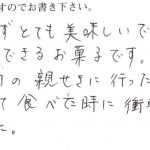 すのでお書き下さい。
ずとても美味しいで
できるお菓子です。
の親せきに行った
て食べた時に衝
た。